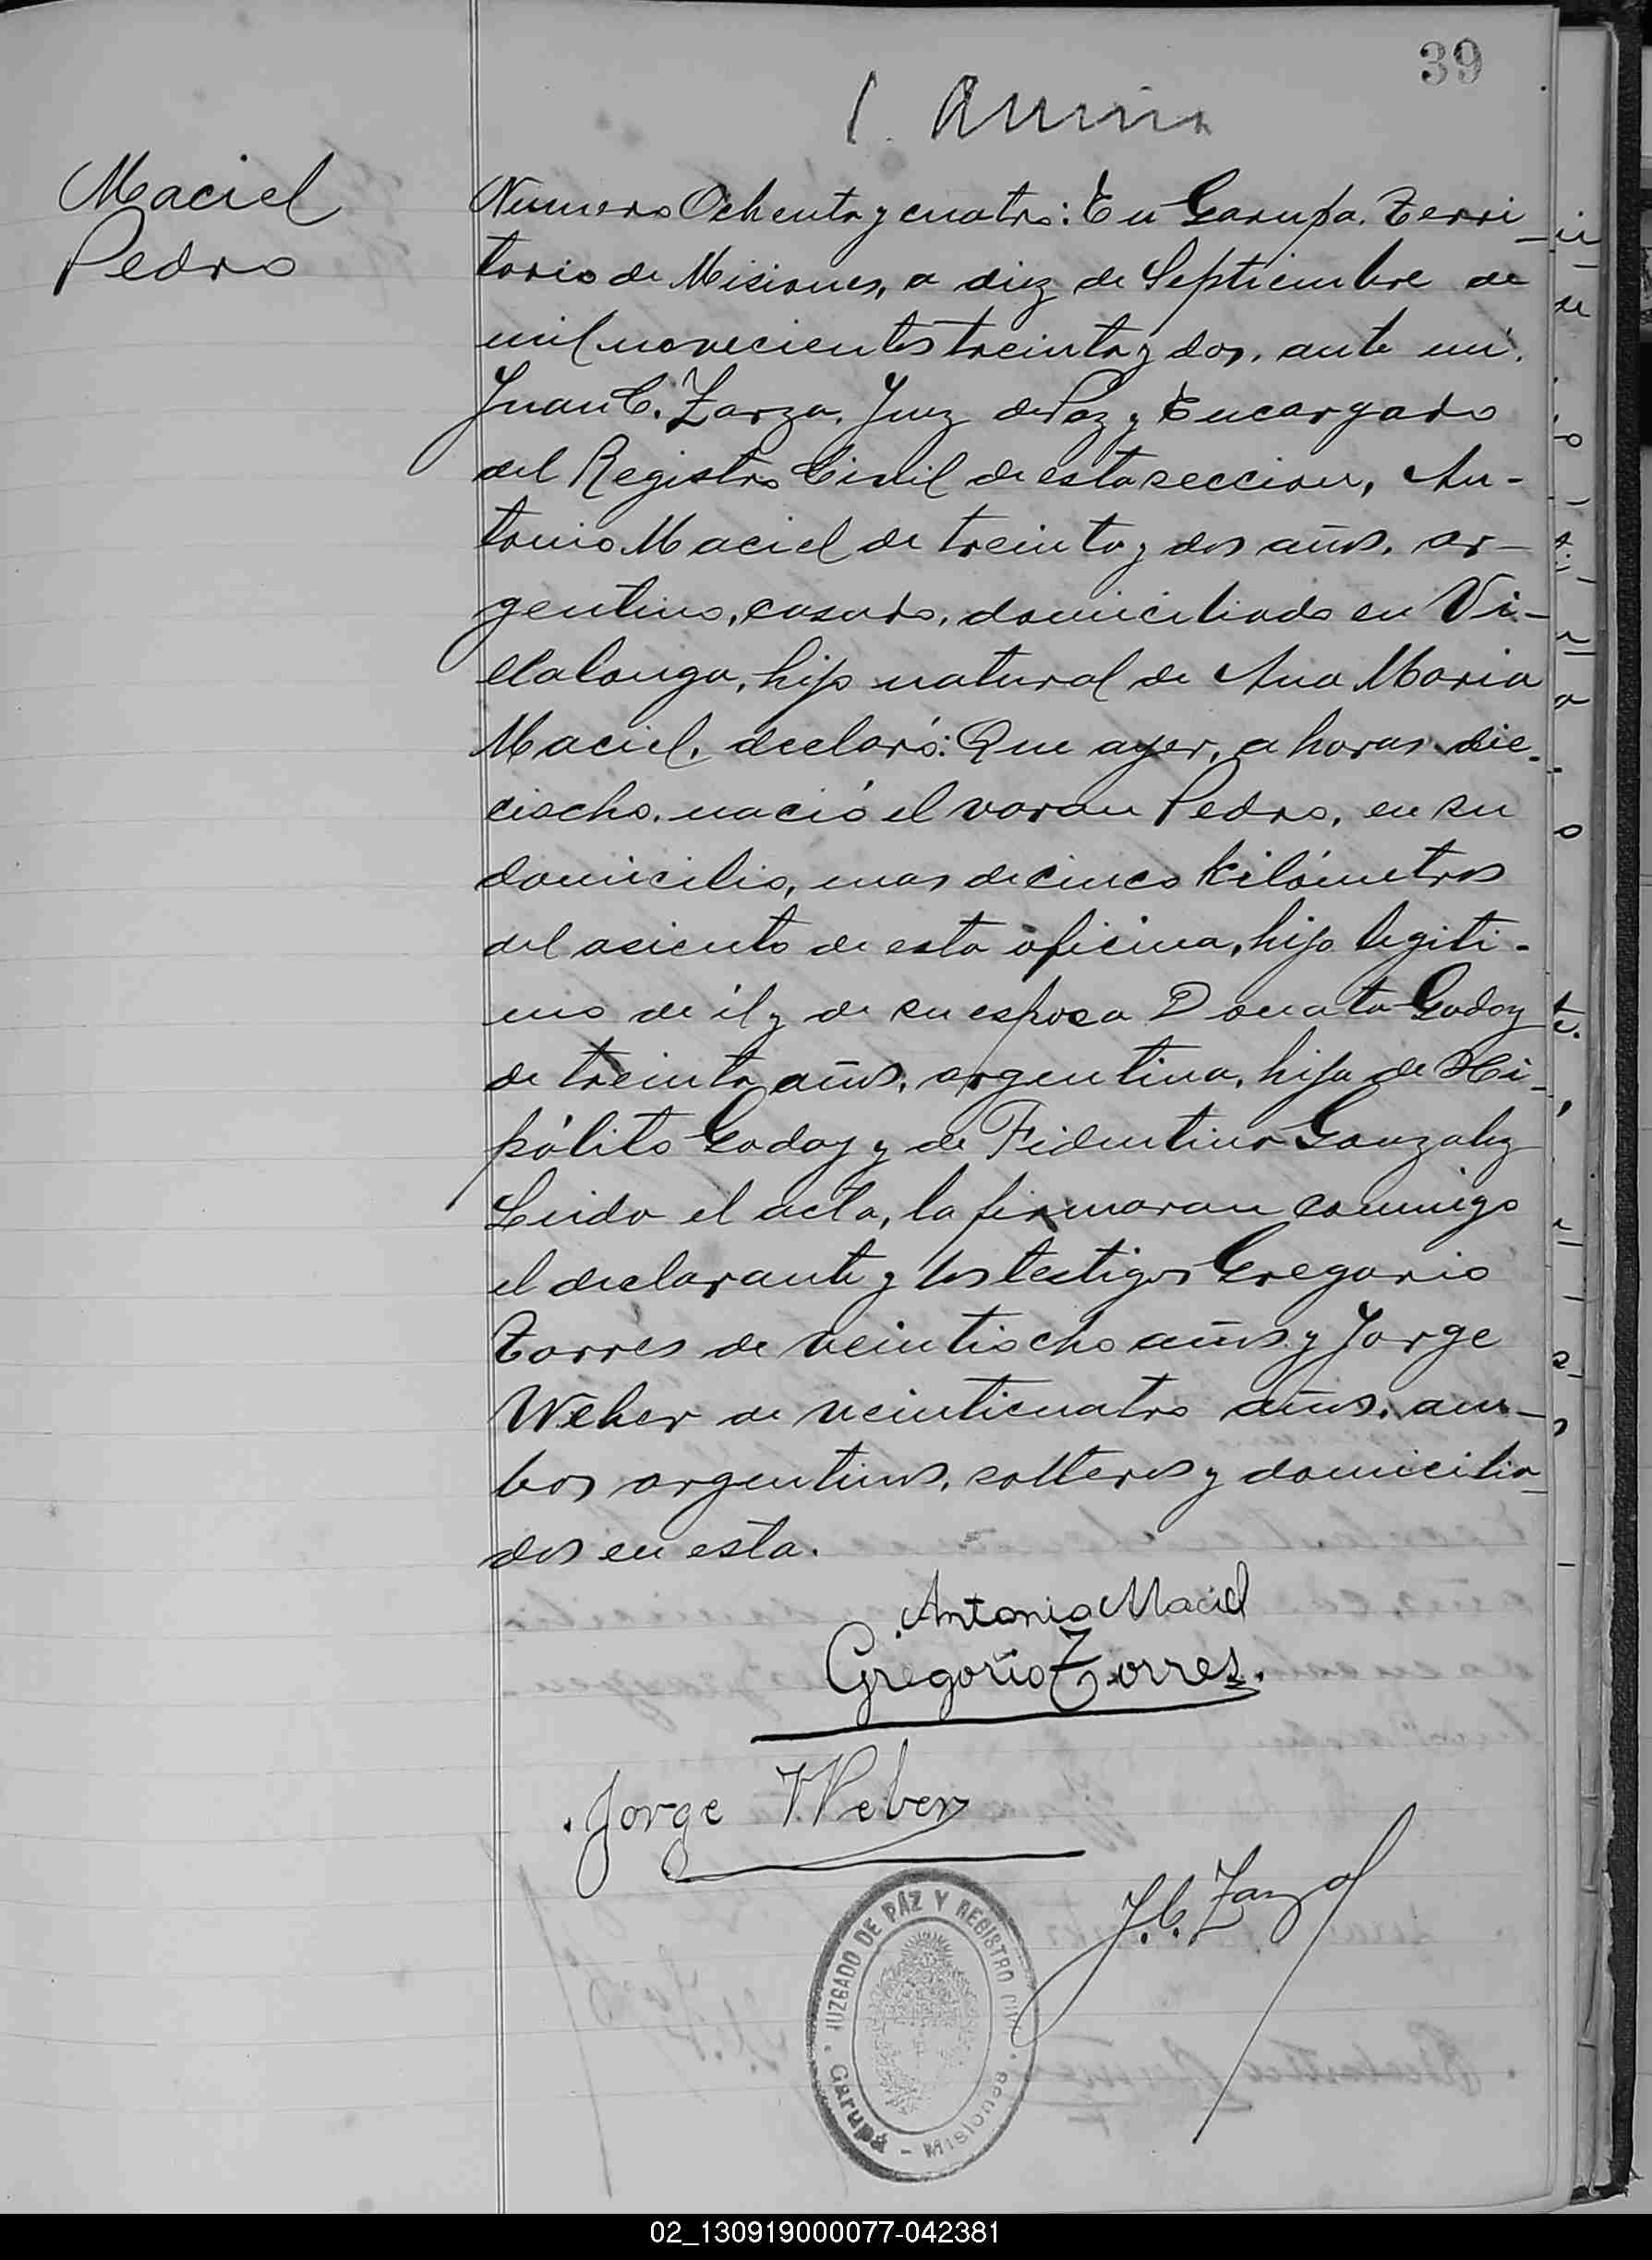 39
Maciel
Pedro
Numero Ochenta y cuatro: En Garupa. Terri-
torio de Misiones, a diez de Septiembre de
mil novecientos treinta y dos, ante mi,
Juan C. Zarza, Juez de Paz y Encargado
del Registro Civil de esta seccion, An-
tonio Maciel de treinta y dos años, ar-
gentino, casado, domiciliado en Vi-
llalonga, hijo natural de Ana Maria
Maciel, declaró: Que ayer, a horas die-
ciocho, nació el varon Pedro, en su
domicilio, mas de cinco kilómetros
del asiento de esta oficina, hijo legiti-
mo de él y de su esposa Donata Godoy
de treinta años, argentina, hija de Hi-
pólito Godoy y de Fidentina Gonzalez
Leida el acta, la firmaran conmigo
el declarante y los testigos Gregorio
Torres de veintiocho años y Jorge
Weber de veinticuatro años, am-
bos argentinos, solteros y domicilia-
dos en esta.
Antonio Maciel
Gregorio Torres.
Jorge Weber
J. C. Zarza
JUZGADO DE PÁZ Y REGISTRO CIVIL
Garupá - Misiones
02_130919000077-042381